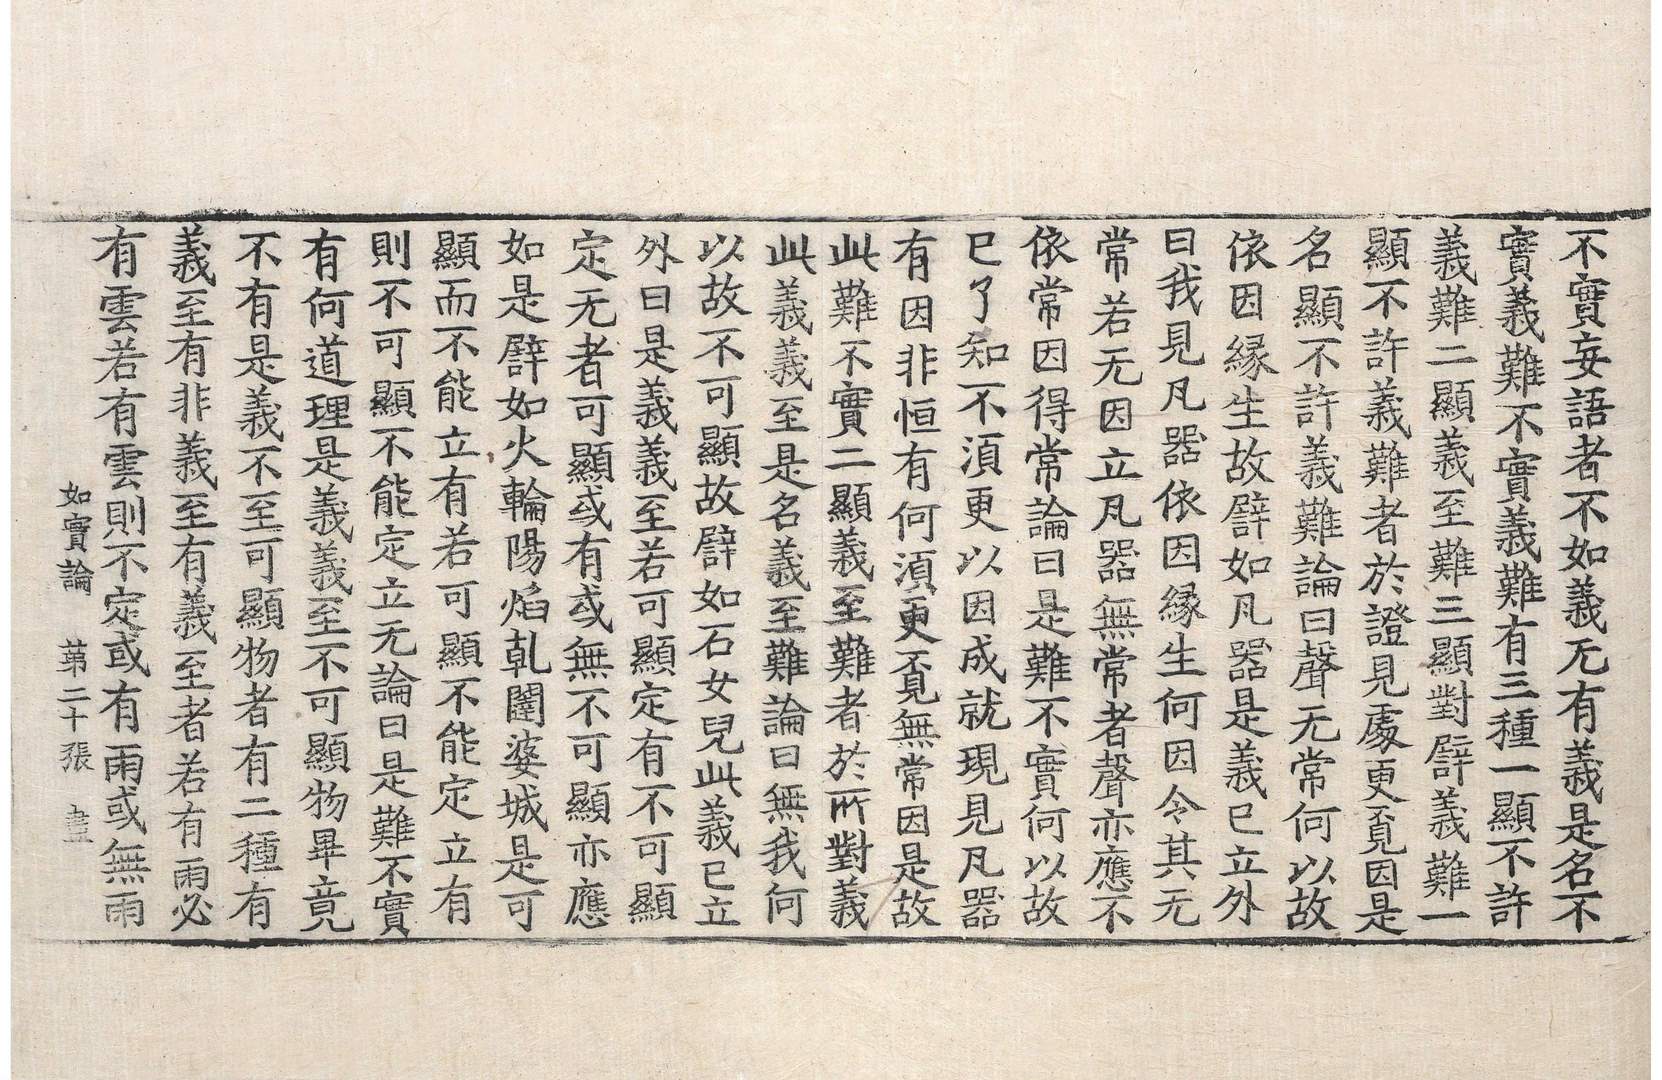 不實妄語者不如義无有義是名不
實義難不實義難有三種一顯不許
義難二顯義至難三顯對譬義難一
顯不許義難者於證見處更覔因是
名顯不許義難論曰聲无常何以故
依因緣生故譬如凡器是義已立外
曰我見凡器依因緣生何因令其无
常若无因立凡器無常者聲亦應不
依常因得常論曰是難不實何以故
已了知不湏更以因成就現見凡器
有因非恒有何湏更覔無常因是故
此難不實二顯義至難者於所對義
此義義至是名義至難論曰無我何
以故不可顯故譬如石女兒此義已立
外曰是義義至若可顯定有不可顯
定无者可顯或有或無不可顯亦應
如是譬如火輪陽焰乹闥婆城是可
顯而不能立有若可顯不能定立有
則不可顯不能定立无論曰是難不實
有何道理是義義至不可顯物畢竟
不有是義不至可顯物者有二種有
義至有非義至有義至者若有雨必
有雲若有雲則不定或有雨或無雨
如實論 苐二十張 盡